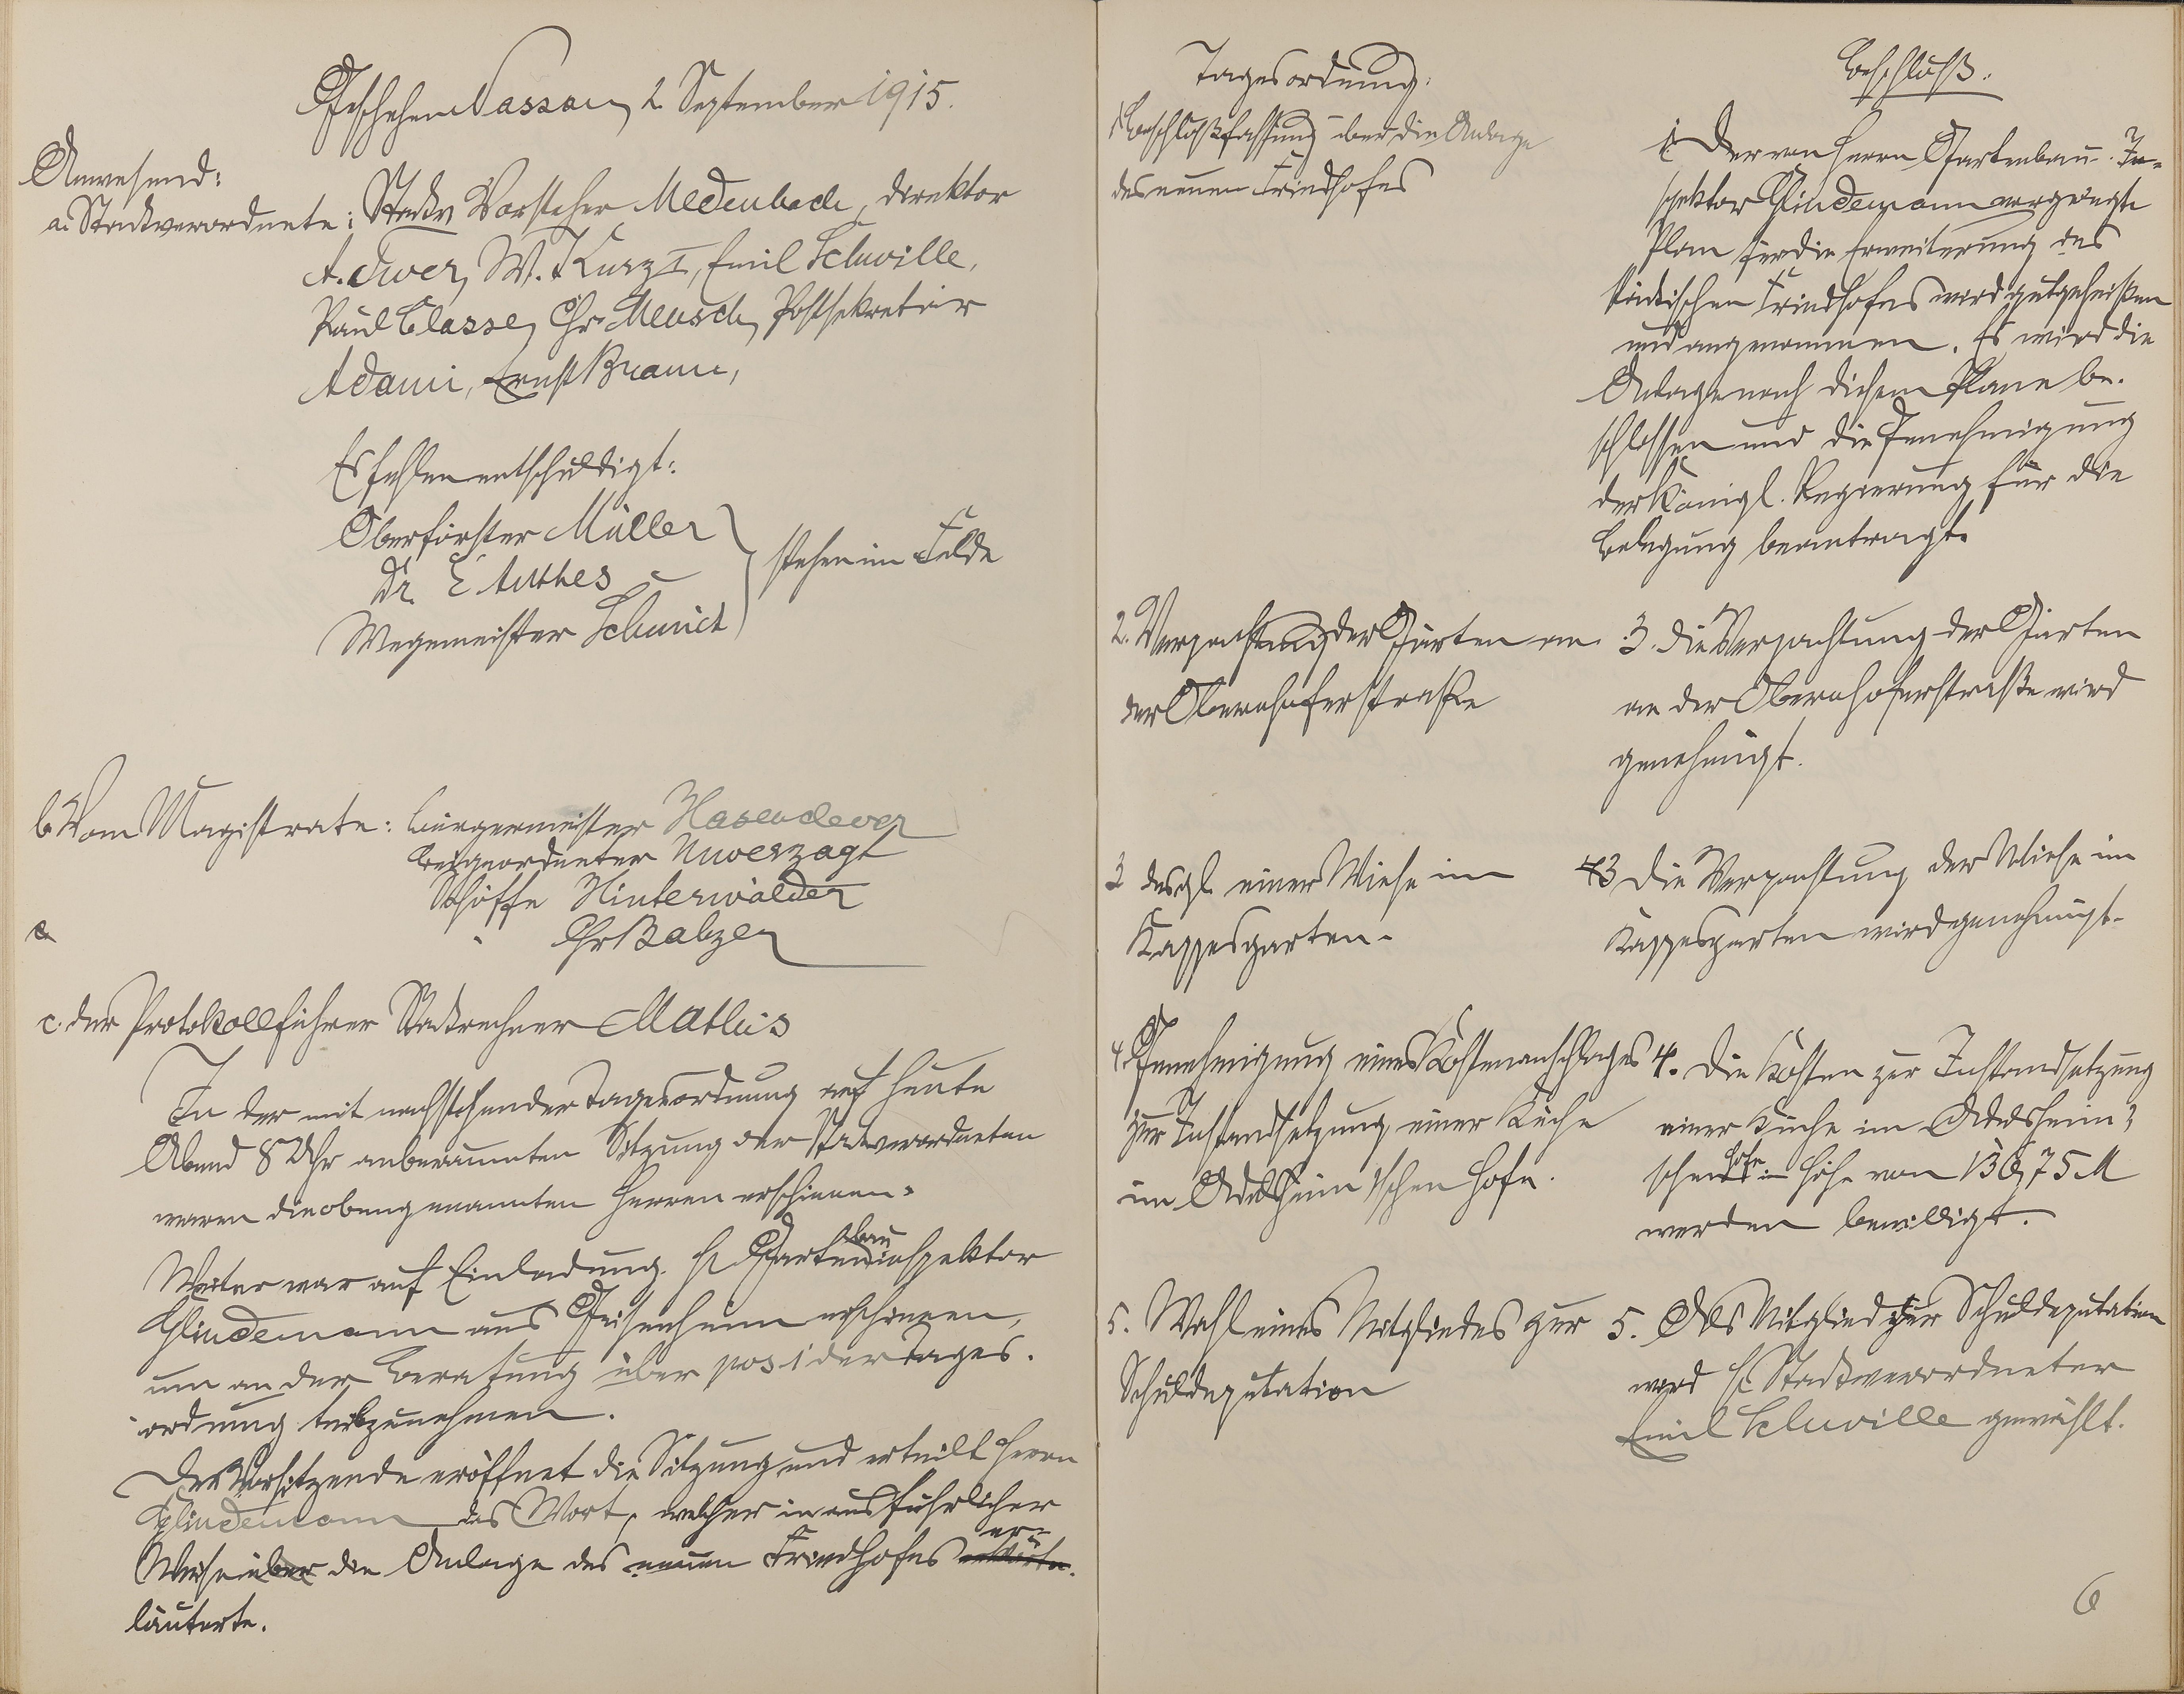 Geschehen Nassau, 2. September 1915.
Anwesend:
a. Stadtverordnete: Stadtv. Vorsteher Medenbach, Direktor
A. Twer, W. Kurz I, Emil Schuville,
Paul Classe, Chr. Meusch, Postsekretär
Adami, Ernst Braun,
Es fehlen entschuldigt:
Oberförster Müller
Dr. E. Anthes
stehen im Felde
Wegemeister Schmidt
b. Vom Magistrate: Bürgermeister Hasenclever
Beigeordneter Unverzagt
Schöffe Hinterwälder
" Chr Balzer
c. der Protokollführer Stadtrechner Mathis
In der mit nachstehender Tagesordnung auf heute
Abend 8 Uhr anberaumten Sitzung der Stadtverordneten
waren die oben genannten Herren erschienen.
Weiter war auf Einladung H. Gartenbauinspektor
Glindemann aus Geisenheim erschienen,
um an der Beratung über pos 1 der Tages-
ordnung teilzunehmen.
Der Vorsitzende eröffnet die Sitzung und erteilt Herrn
Glindemann das Wort, welcher in ausführlicher
Weise über die Anlage des neuen Friedhofes er-
läuterte.
Tagesordnung:
1 Beschlußfassung über die Anlage
des neuen Friedhofes
2. Verpachtung der Gärten an
der Obernhoferstraße
3 desgl. einer Wiese im
Kappesgarten.
4. Genehmigung eines Kostenanschlages
zur Instandsetzung einer Küche
im Adelsheim'schen Hofe.
5. Wahl eines Mitgliedes zur
Schuldeputation
Beschluß.
1. Der von Herrn Gartenbau-In-
spektor Glindemann vorgelegte
Plan für die Erweiterung des
städtischen Friedhofes wird gutgeheißen
und angenommen. Es wird die
Anlage nach diesem Plane be-
schlossen und die Genehmigung
der Königl. Regierung für die
Belegung beantragt.
3. Die Verpachtung der Gärten
an der Obernhoferstraße wird
genehmigt.
3 Die Verpachtung der Wiese im
Kappesgarten wird genehmigt.
4. Die Kosten zur Instandsetzung
einer Küche im Adelsheim'
schen Hofe in Höhe von 136,75 M
werden bewilligt.
5. Als Mitglied zur Schuldeputation
wird H. Stadtverordneter
Emil Schuville gewählt.
6